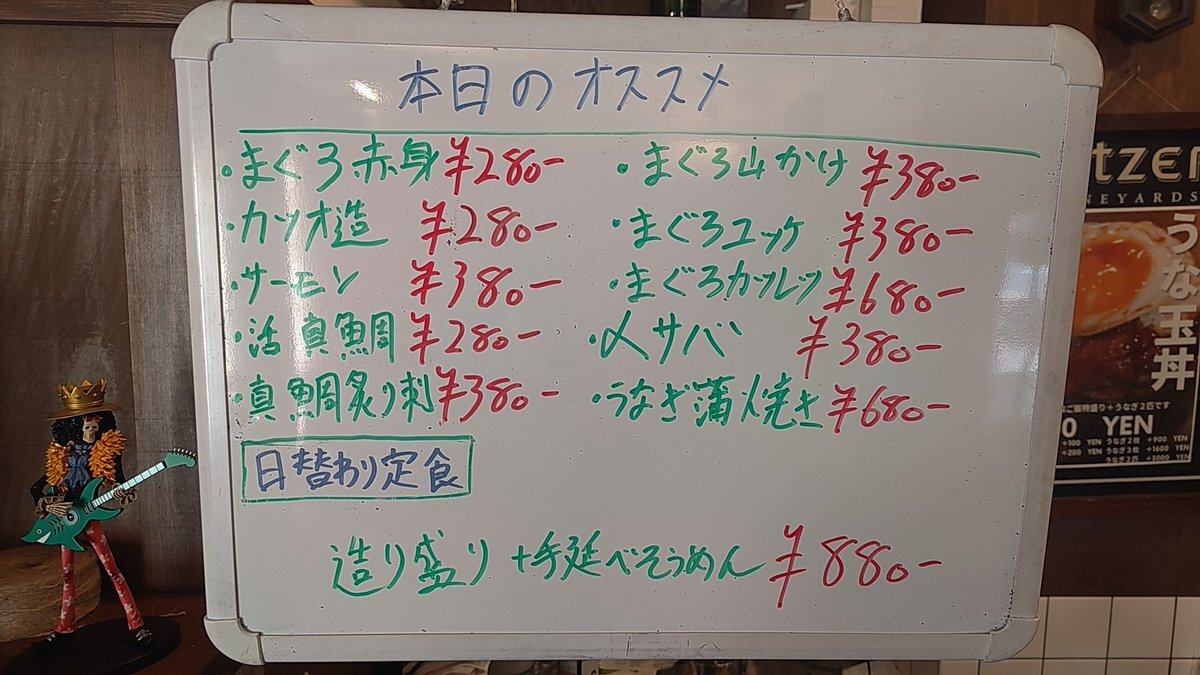 本日のオススメ
・まぐろ赤身 ¥280-
・カツオ造 ¥280-
・サーモン ¥380-
・活真鯛 ¥280-
・真鯛炙り刺 ¥380-
・まぐろ山かけ ¥380-
・まぐろユッケ ¥380-
・まぐろカツレツ ¥680-
・〆サバ ¥380-
・うなぎ蒲焼き ¥680-
日替わり定食
造り盛り+手延べそうめん ¥880-
TZEN
NEYARDS
うな玉丼
ご飯特盛り+うなぎ2匹です
0 YEN
YEN うなぎ2枚 +900 YEN
YEN うなぎ3枚 +1600 YEN
うなぎ2匹 +3000 YEN